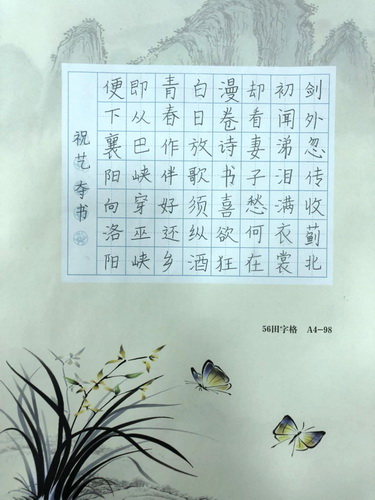 剑外忽传收蓟北
初闻涕泪满衣裳
却看妻子愁何在
漫卷诗书喜欲狂
白日放歌须纵酒
青春作伴好还乡
即从巴峡穿巫峡
便下襄阳向洛阳
祝艺夺书
56田字格 A4-98